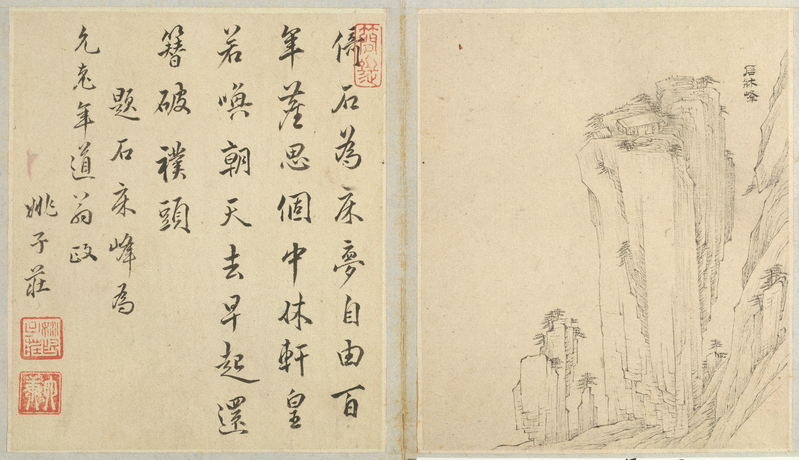 倚石為床夢自由百
年塵思個中休軒皇
若喚朝天去早起還
簪破襆頭
題石床峰為
允老年道翁政
姚子莊
石牀峰